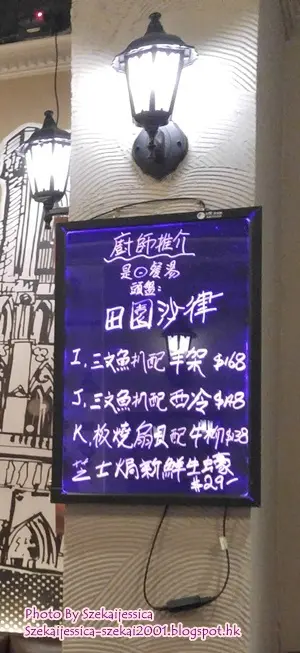 廚師推介
是日餐湯
頭盤:
田園沙律
I. 三文魚扒配羊架 $168
J. 三文魚扒配西冷 $148
K. 板燒扇貝配牛柳 $138
芝士焗新鮮生蠔
$29-
Photo By Szekaijessica
Szekaijessica-szekai2001.blogspot.hk